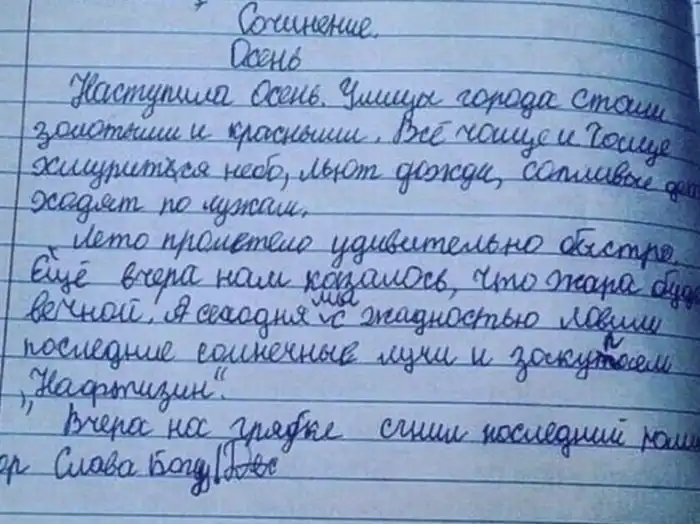 Сочинение.
Осень
Наступила Осень. Улицы города стали
золотыми и красными. Всё чаще и чаще
хмуриться небо, льют дожди, сопливые де
ходят по лужам.
Лето пролетело удивительно быстро.
Ещё вчера нам казалось, что жара буде
вечной. А сегодня мы с жадностью ловим
последние солнечные лучи и закупаем
„Нафтизин".
Вчера на грядке сгнил последний поми
ор Слава Богу!